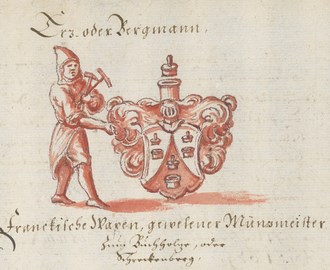 Erz. oder Bergmann.
Franckische Wapen, gewesener Münzmeister
zum Buchholze, oder
Schreckenberg.